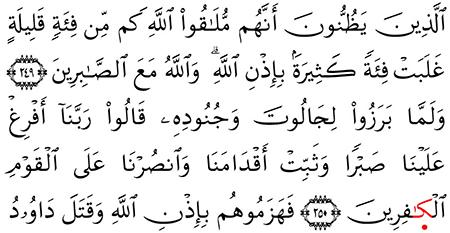 ٱلَّذِينَ يَظُنُّونَ أَنَّهُم مُّلَـٰقُوا۟ ٱللَّهِ كَم مِّن فِئَةٍ قَلِيلَةٍ
غَلَبَتْ فِئَةً كَثِيرَةًۢ بِإِذْنِ ٱللَّهِ ۗ وَٱللَّهُ مَعَ ٱلصَّـٰبِرِينَ ﴿٢٤٩﴾
وَلَمَّا بَرَزُوا۟ لِجَالُوتَ وَجُنُودِهِۦ قَالُوا۟ رَبَّنَآ أَفْرِغْ
عَلَيْنَا صَبْرًا وَثَبِّتْ أَقْدَامَنَا وَٱنصُرْنَا عَلَى ٱلْقَوْمِ
ٱلْكَـٰفِرِينَ ﴿٢٥٠﴾ فَهَزَمُوهُم بِإِذْنِ ٱللَّهِ وَقَتَلَ دَاوُۥدُ